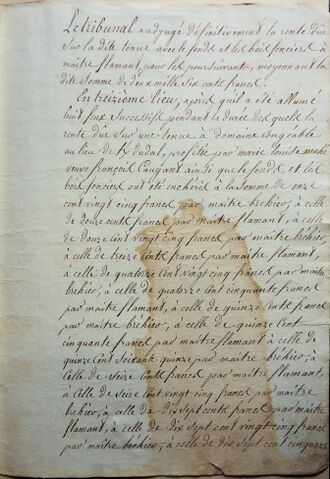 Le tribunal a adjugé définitivement la rente due
sur la dite tenue avec le fonds et les bois fonciers à
maître flamant, pour les poursuivants, moyennant la
dite somme de deux mille six cents francs.
En treizième lieu, après quil a été allumé
huit feux successifs pendant la durée desquels la
rente due sur une tenue à domaine congéable
au lieu de profitée par marie Louise mahé
veuve françois Caugant ainsi que le fonds et les
bois fonciers ont été enchéris à la somme de onze
cent vingt cinq francs par maitre brehier, à celle
de douze cents francs par maitre flamant, à celle
de douze cent vingt cinq francs par maitre brehier
à celle de treize cents francs par maitre flamant,
à celle de quatorze cent vingt cinq francs par maitre
brehier, à celle de quatorze cent cinquante francs
par maitre flamant, à celle de quinze cents francs
par maitre brehier, à celle de quinze cent
cinquante francs par maitre flamant à celle de
quinze cent soixante quinze par maitre brehier, à
celle de seize cents francs par maitre flamant,
à celle de seize cent vingt cinq francs par maitre
brehier, à celle de dix sept cents francs par maitre
flamant, à celle de dix sept cent vingt cinq francs
par maitre brehier, à celle de dix sept cent cinquante